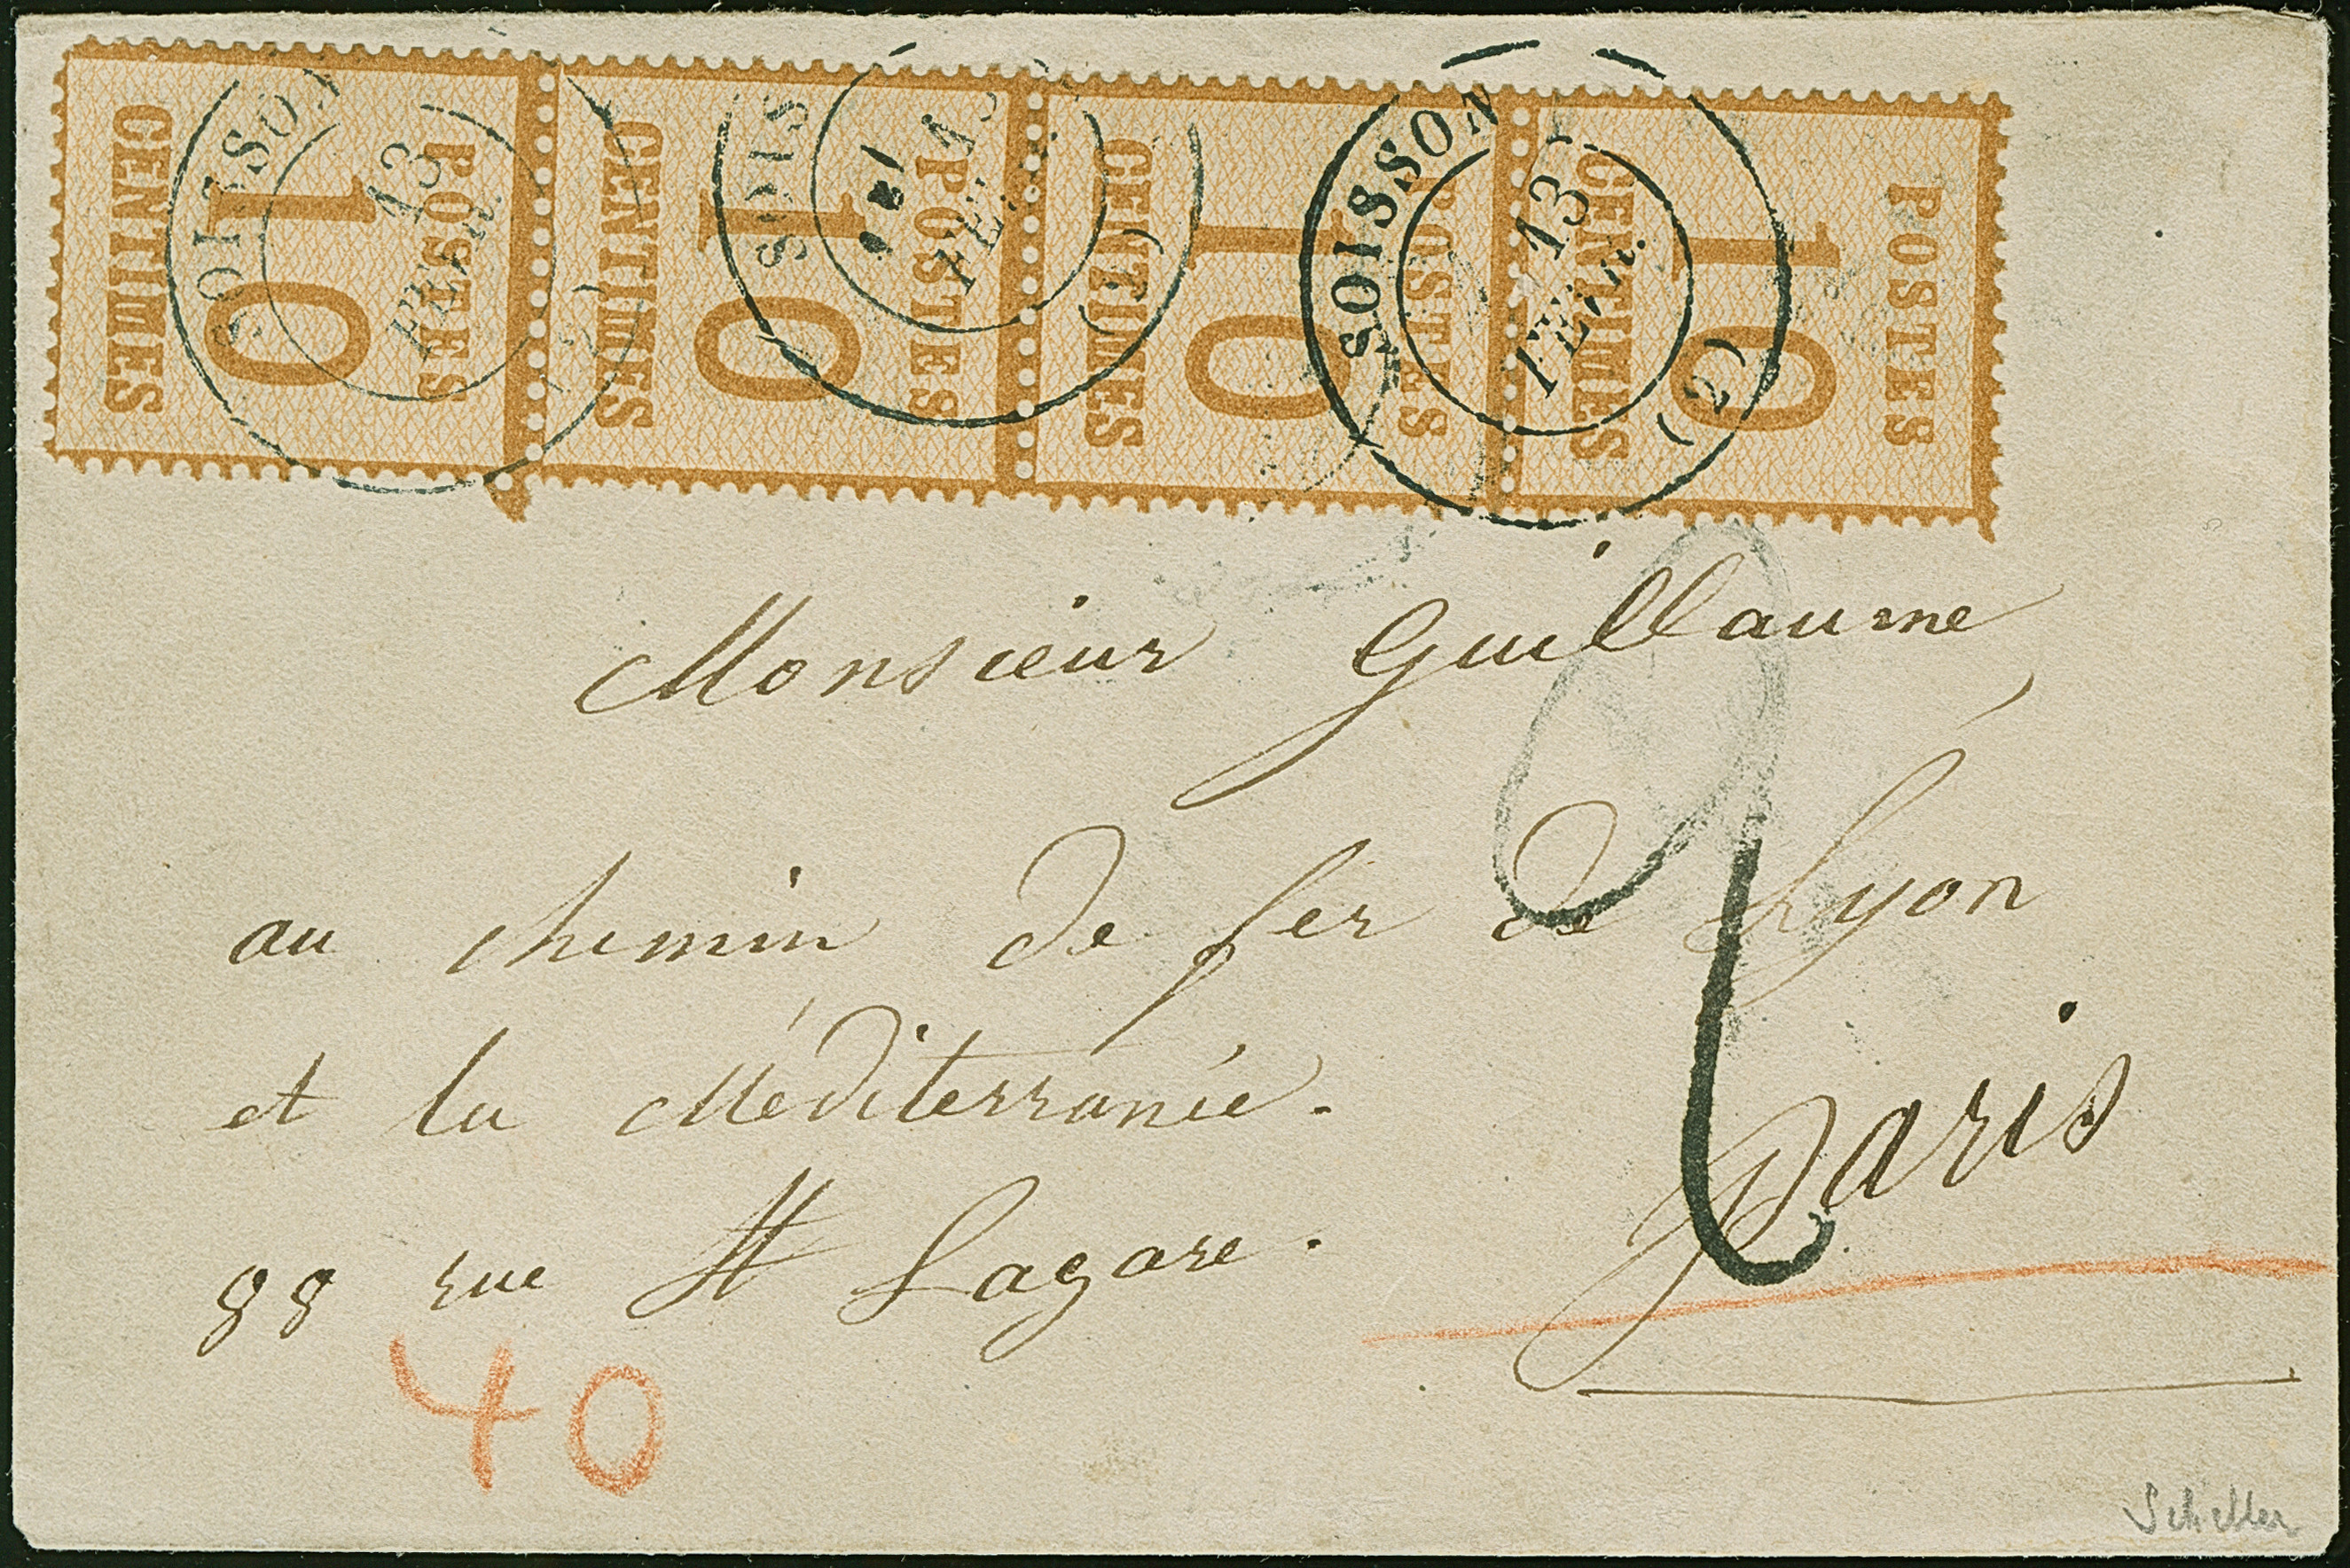 POSTES 10 CENTIMES
POSTES 10 CENTIMES
POSTES 10 CENTIMES
POSTES 10 CENTIMES
SOISSON 13 FEVR. (2)
SOIS 13 FE
SOISSON 13 FEVR. (2)
Monsieur Guillaume
au chemin de fer de Lyon
et la Méditerranée.
Paris
88 rue St Lazare.
40
2
Scheller